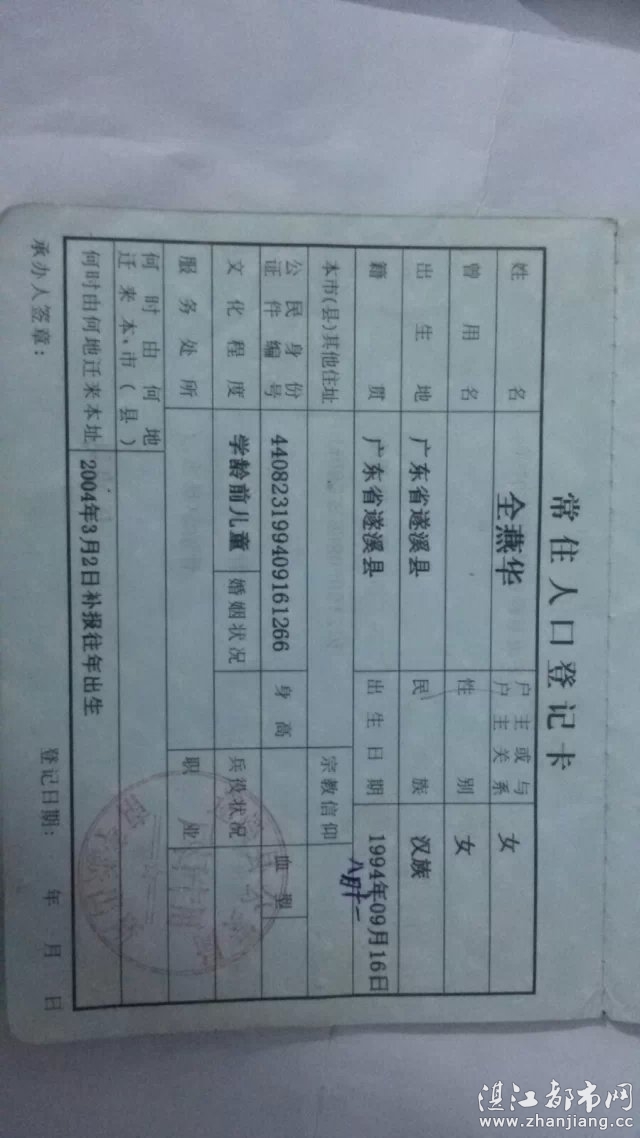 常住人口登记卡
姓名 全燕华 户主或与户主关系 女
曾用名 性别 女
出生地 广东省遂溪县 民族 汉族
籍贯 广东省遂溪县 出生日期 1994年09月16日
八月十二
本市(县)其他住址 宗教信仰
公民身份证件编号 440823199409161266 身高 血型
文化程度 学龄前儿童 婚姻状况 兵役状况
服务处所 职业
何时由何地迁来本、市(县)
何时由何地迁来本址 2004年3月2日补报往年出生
承办人签章: 登记日期: 年 月 日
湛江都市网
www.zhanjiang.cc